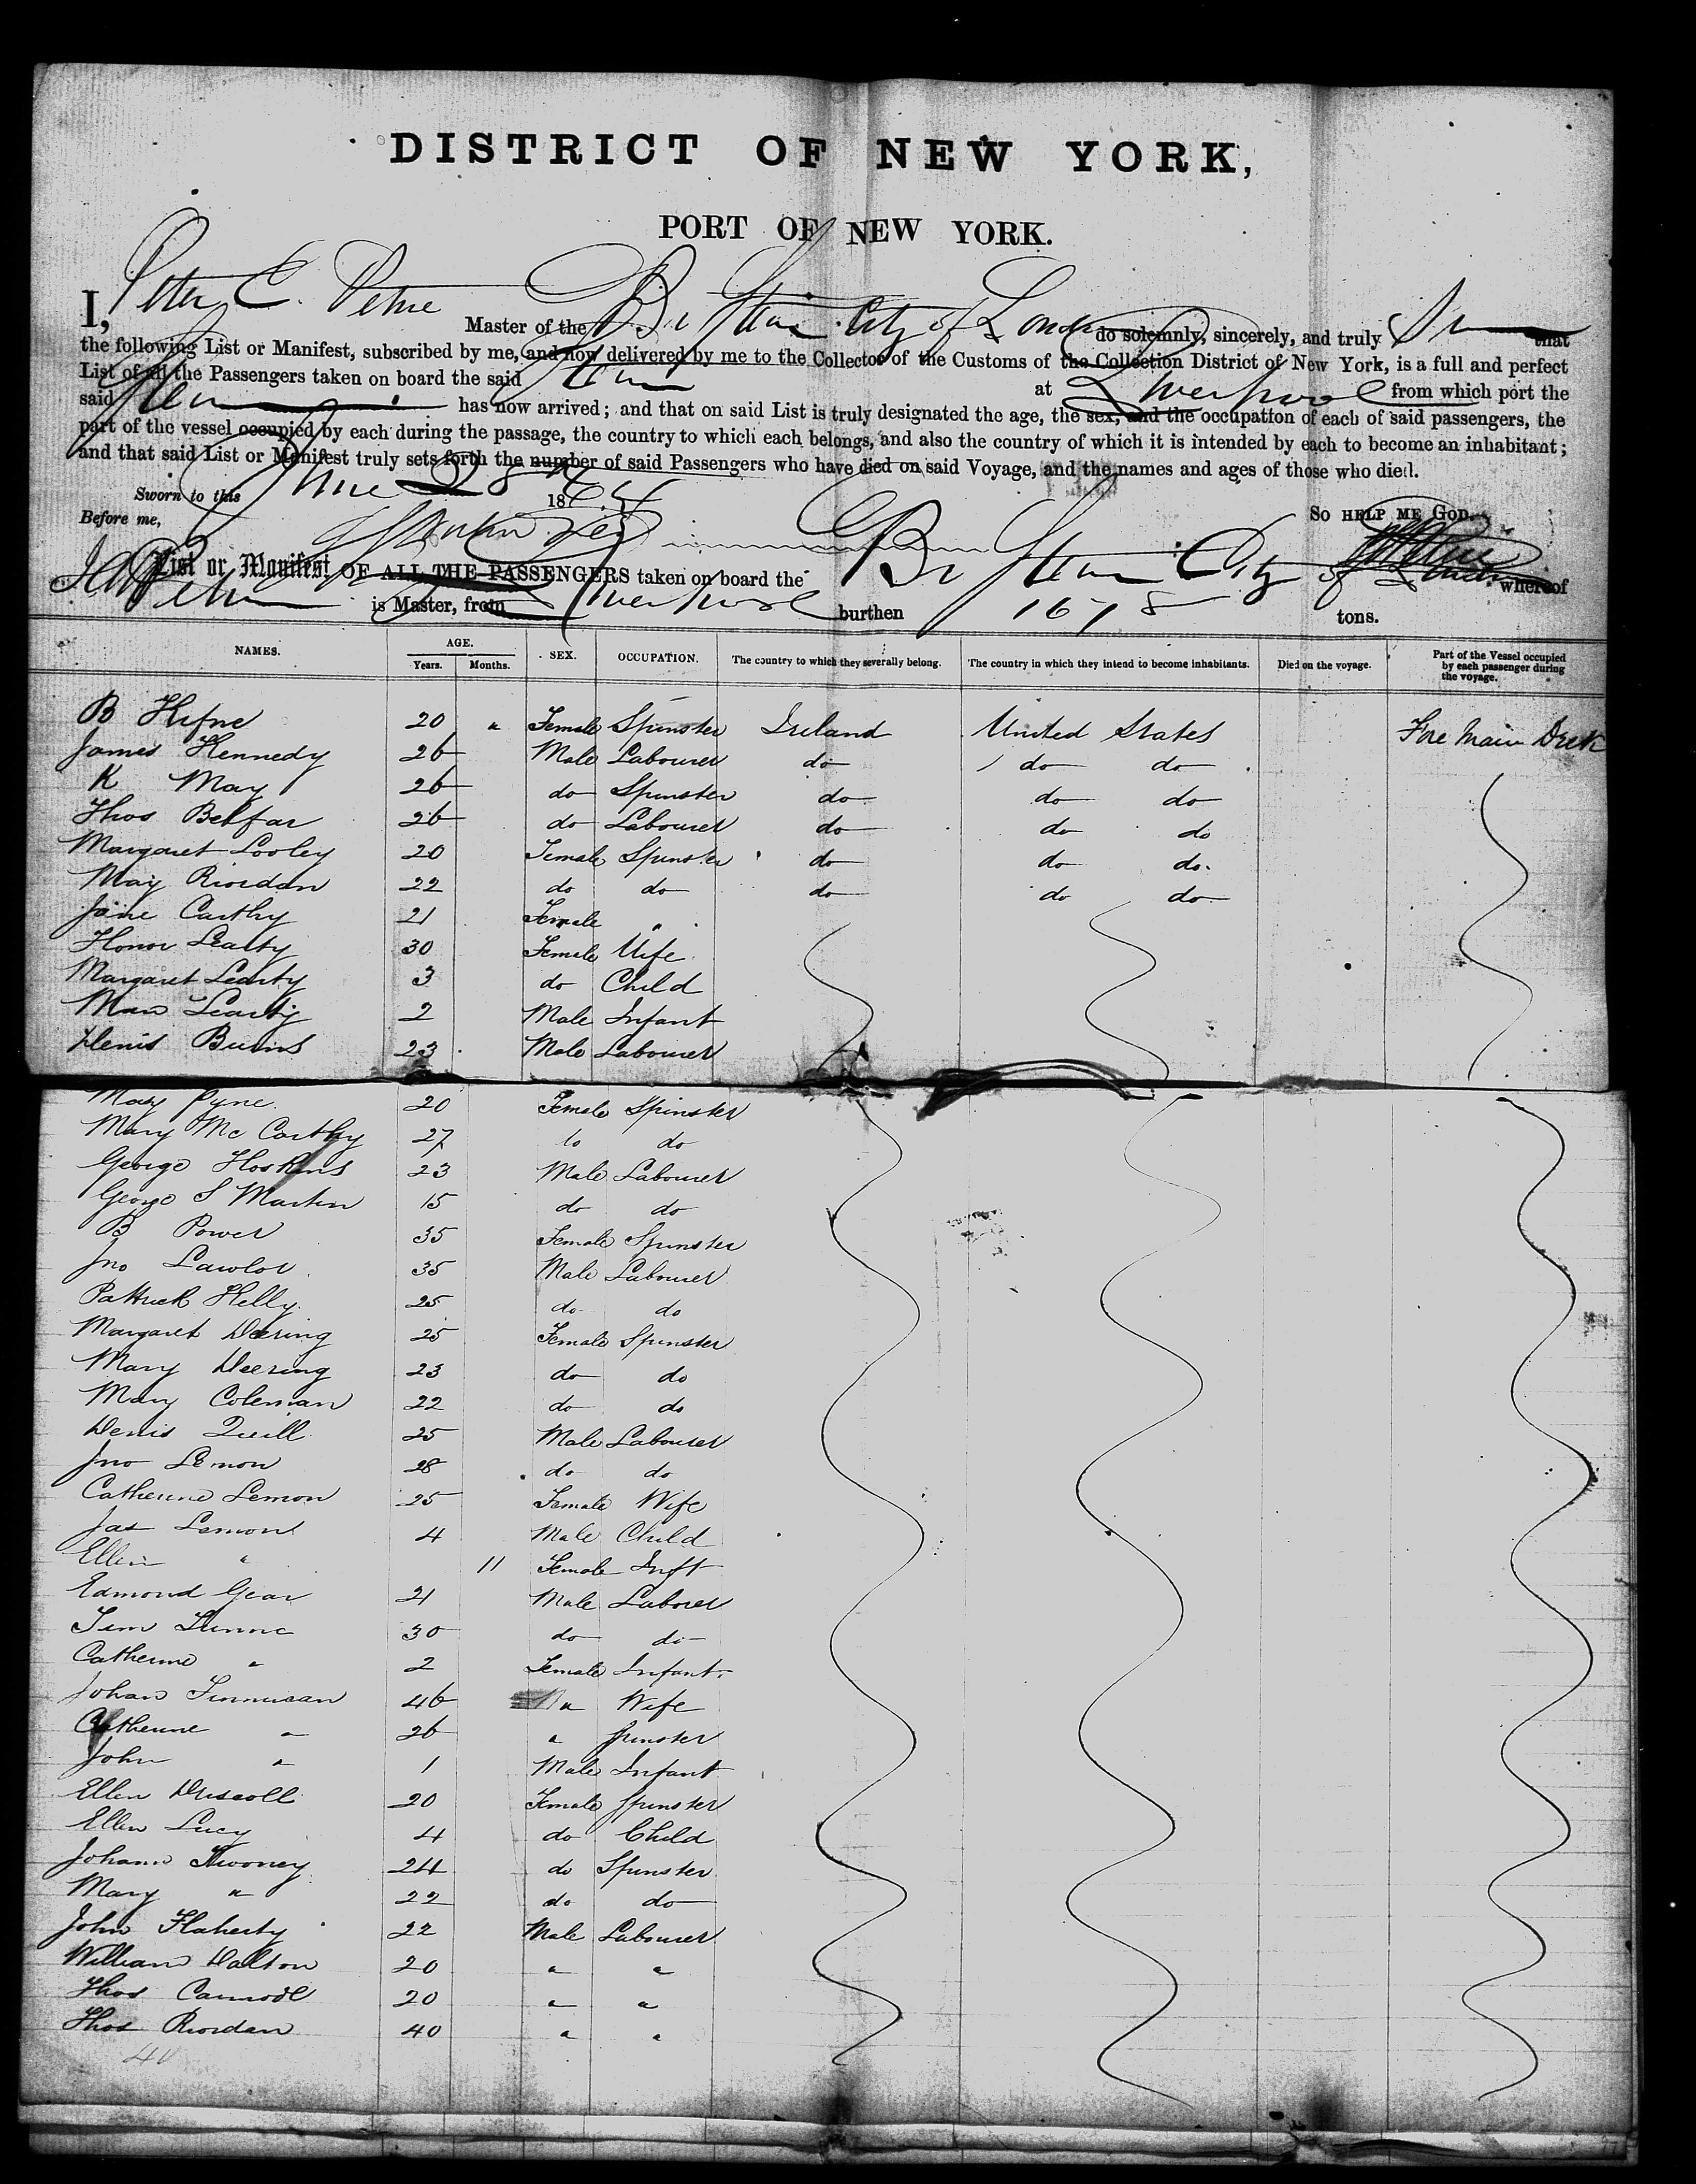 DISTRICT OF NEW YORK,
PORT OF NEW YORK.
I, Peter C. Petrie Master of the Br Steam City of London do solemnly, sincerely, and truly that
the following List or Manifest, subscribed by me, and now delivered by me to the Collector of the Customs of the Collection District of New York, is a full and perfect
List of all the Passengers taken on board the said at Liverpool from which port the
said has now arrived; and that on said List is truly designated the age, the sex, and the occupation of each of said passengers, the
part of the vessel occupied by each during the passage, the country to which each belongs, and also the country of which it is intended by each to become an inhabitant;
and that said List or Manifest truly sets forth the number of said Passengers who have died on said Voyage, and the names and ages of those who died.
Sworn to this June 28 1864 SO HELP ME GOD.
Before me,
List or Manifest OF ALL THE PASSENGERS taken on board the Br Steam City of London whereof
Petrie is Master, from Liverpool burthen 1678 tons.
NAMES. AGE. Years. Months. SEX. OCCUPATION. The country to which they severally belong. The country in which they intend to become inhabitants. Died on the voyage. Part of the Vessel occupied by each passenger during the voyage.
B 20 " Female Spinster Ireland United States Fore Main Deck
James Kennedy 26 Male Labourer do do do
K May 26 do Spinster do do do
Thos Belfar 26 do Labourer do do do
Margaret Looley 20 Female Spinster do do do.
May Riordan 22 do do do do do
Jane Carthy 21 Female "
Honor Learty 30 Female Wife
Margaret Learty 3 do Child
Learty 2 Male Infant
Denis Burns 23 Male Labourer
Mary Pyne 20 Female Spinster
Mary Mc Carthy 27 do do
George Hoskins 23 Male Labourer
George S Martin 15 do do
B Power 35 Female Spinster
Jno Lawlor 35 Male Labourer
Pattrick Kelly 25 do do
Margaret Deering 25 Female Spinster
Mary Deering 23 do do
Mary Coleman 22 do do
Denis Quill 25 Male Labourer
Jno Lemon 28 do do
Catherine Lemon 25 Female Wife
Jas Lemon 4 Male Child
Ellen " 11 Female Inft
Edmond Gear 21 Male Laborer
Tim Dunne 30 do do
Catherine " 2 Female Infant
Johan Finnucan 46 " Wife
Catherine " 26 " Spinster
John " 1 Male Infant
Ellen Driscoll 20 Female Spinster
Ellen Lucy 4 do Child
Johann Twoney 24 do Spinster
Mary " 22 do do
John Flaherty 22 Male Labourer
William Dalton 20 " "
Thos 20 " "
Thos Riordan 40 " "
40